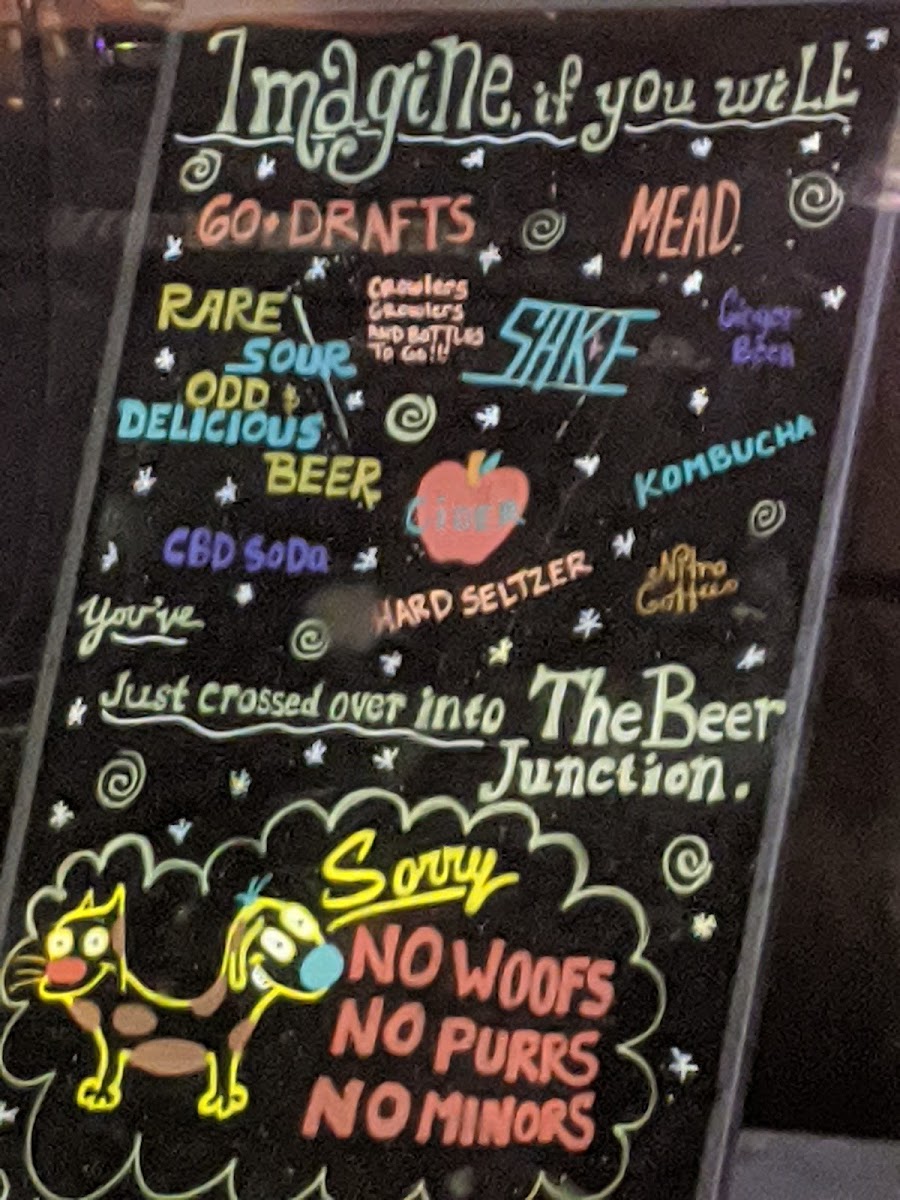 Imagine, if you will
60+ DRAFTS
MEAD
RARE
SOUR
ODD &
DELICIOUS
BEER
Crowlers
Growlers
AND BOTTLES
TO GO!!
SAKE
Ginger
Beer
KOMBUCHA
CiDER
CBD SODa
HARD SELTZER
Nitro
Coffee
You've
Just crossed over into The Beer
Junction.
Sorry
NO WOOFS
NO PURRS
NO MINORS